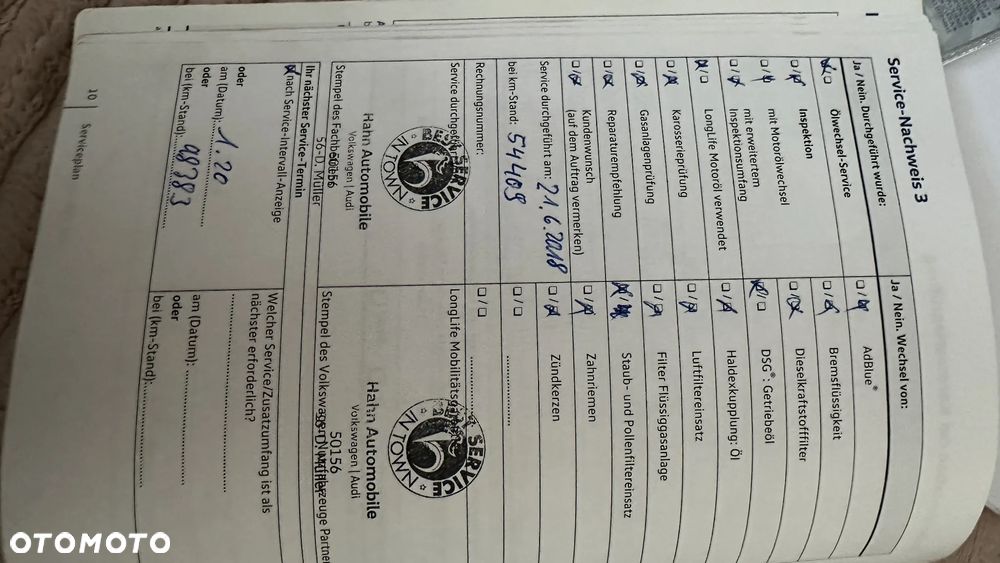 Service-Nachweis 3
Ja / Nein. Durchgeführt wurde:
Ölwechsel-Service
Inspektion
mit Motorölwechsel
mit erweitertem
Inspektionsumfang
LongLife Motoröl verwendet
Karosserieprüfung
Gasanlagenprüfung
Reparaturempfehlung
Kundenwunsch
(auf dem Auftrag vermerken)
Service durchgeführt am: 21.6.2018
bei km-Stand: 54409
Rechnungsnummer:
Service durchgeführt
SERVICE
IN TOWN
Hahn Automobile
Volkswagen | Audi
50156
56-D. Müller
Stempel des Fachbetriebs
Ihr nächster Service-Termin
nach Service-Intervall-Anzeige
oder
am (Datum): 1.20
oder
bei (km-Stand): 98783
Ja / Nein. Wechsel von:
AdBlue®
Bremsflüssigkeit
Dieselkraftstofffilter
DSG®: Getriebeöl
Haldexkupplung: Öl
Luftfiltereinsatz
Filter Flüssiggasanlage
Staub- und Pollenfiltereinsatz
Zahnriemen
Zündkerzen
LongLife Mobilitätsgarantie
SERVICE
IN TOWN
Hahn Automobile
Volkswagen | Audi
50156
Stempel des Volkswagen Nutzfahrzeuge Partner
Welcher Service/Zusatzumfang ist als
nächster erforderlich?
am (Datum):
oder
bei (km-Stand):
10 | Serviceplan
OTOMOTO